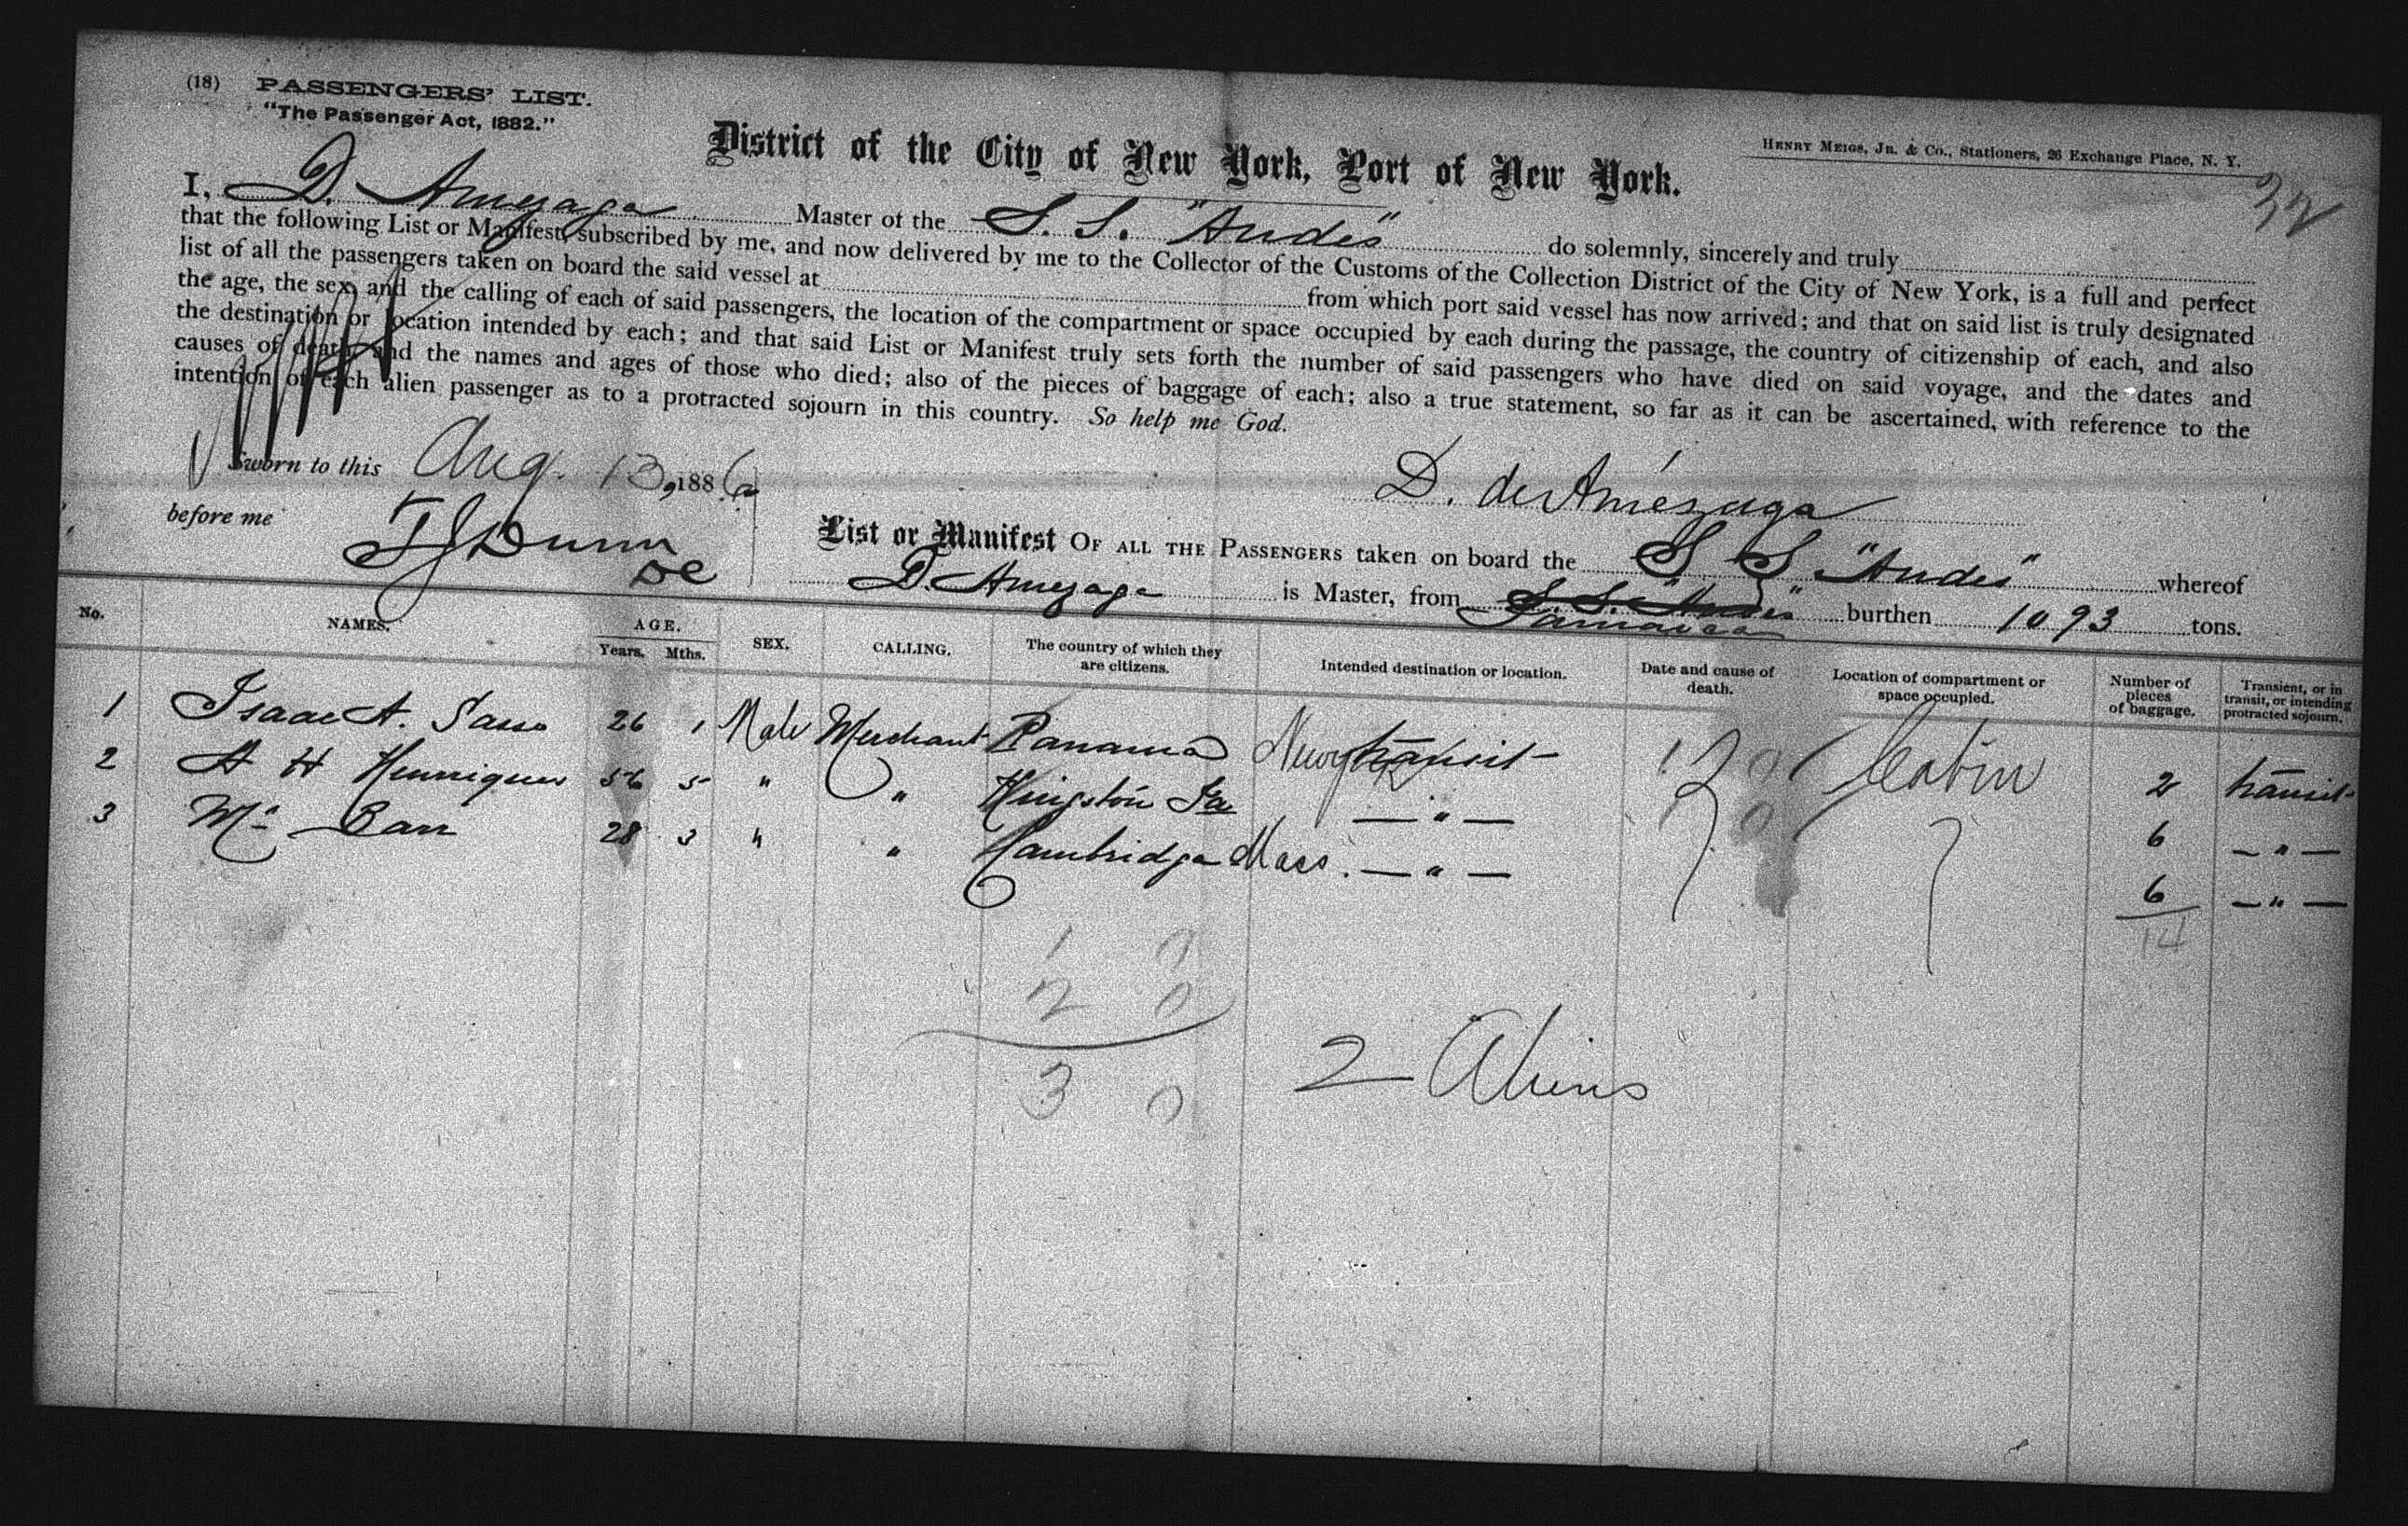 (18) PASSENGERS' LIST.
"The Passenger Act, 1882."
HENRY MEIGS, JR. & CO., Stationers, 26 Exchange Place, N. Y.
32
District of the City of New York, Port of New York.
I, D. Amezaga Master of the S. S. "Andes" do solemnly, sincerely and truly
that the following List or Manifest, subscribed by me, and now delivered by me to the Collector of the Customs of the Collection District of the City of New York, is a full and perfect
list of all the passengers taken on board the said vessel at from which port said vessel has now arrived; and that on said list is truly designated
the age, the sex, and the calling of each of said passengers, the location of the compartment or space occupied by each during the passage, the country of citizenship of each, and also
the destination or location intended by each; and that said List or Manifest truly sets forth the number of said passengers who have died on said voyage, and the dates and
causes of death, and the names and ages of those who died; also of the pieces of baggage of each; also a true statement, so far as it can be ascertained, with reference to the
intention of each alien passenger as to a protracted sojourn in this country. So help me God.
Sworn to this Aug. 13, 1886
D. de Amézaga
before me T J Dunn
DC
List or Manifest OF ALL THE PASSENGERS taken on board the S S "Andes" whereof
D. Amezaga is Master, from S. S. "Andes" Jamaica burthen 1093 tons.
No. NAMES. AGE. Years. Mths. SEX. CALLING. The country of which they are citizens. Intended destination or location. Date and cause of death. Location of compartment or space occupied. Number of pieces of baggage. Transient, or in transit, or intending protracted sojourn.
1 Isaac A. Sasso 26 1 Male Merchant Panama transit Cabin 2 transit
2 A H Henriques 56 5 " " Kingston Ja — " — 6 — " —
3 Mr Barr 28 3 " " Cambridge Mass. — " — 6 — " —
14
1 0
2 0
3 0
2 Aliens